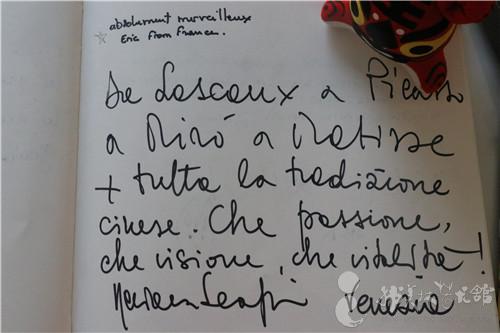 absolument merveilleux
Eric from France.
De Lascaux a Picasso
a Miró a Matisse
+ tutta la tradizione
cinese. Che passione,
che visione, che vitalità!